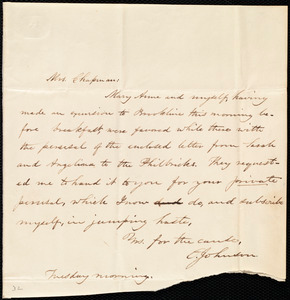 Mrs. Chapman,
Mary Anne and myself, having
made an excursion to Brookline this morning be-
fore breakfast, were favored while there with
the perusal of the enclosed letter from Sarah
and Angelina to the Philbricks. They request-
ed me to hand it to you for your private
perusal, which I now do, and subscribe
myself, in jumping haste,
Yours for the cause,
O. Johnson
Tuesday morning.